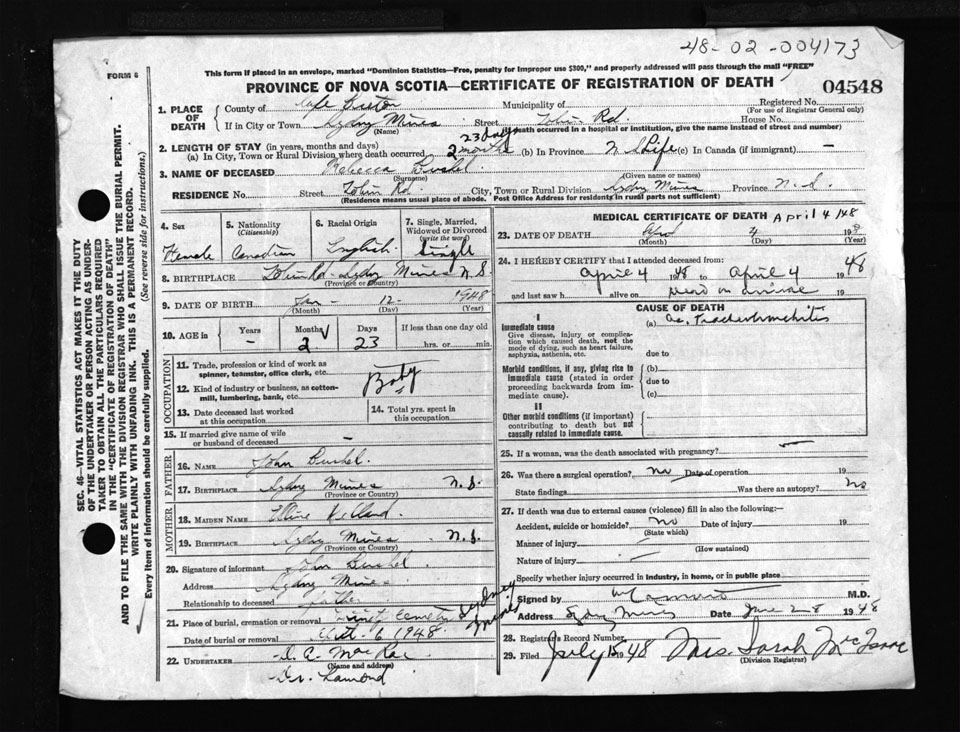 48-02-004173
FORM 6
This form if placed in an envelope, marked "Dominion Statistics—Free, penalty for improper use $300," and properly addressed will pass through the mail "FREE"
PROVINCE OF NOVA SCOTIA—CERTIFICATE OF REGISTRATION OF DEATH
04548
SEC. 46—VITAL STATISTICS ACT MAKES IT THE DUTY
OF THE UNDERTAKER OR PERSON ACTING AS UNDER-
TAKER TO OBTAIN ALL THE PARTICULARS REQUIRED
IN THE "CERTIFICATE OF REGISTRATION OF DEATH"
AND TO FILE THE SAME WITH THE DIVISION REGISTRAR WHO SHALL ISSUE THE BURIAL PERMIT.
WRITE PLAINLY WITH UNFADING INK. THIS IS A PERMANENT RECORD.
Every item of information should be carefully supplied. (See reverse side for instructions.)
1. PLACE OF DEATH County of Cape Breton Municipality of Registered No.
(For use of Registrar General only)
If in City or Town Sydney Mines Street Tobin Rd. House No.
(Name) (If death occurred in a hospital or institution, give the name instead of street and number)
2. LENGTH OF STAY (in years, months and days)
(a) In City, Town or Rural Division where death occurred 2 months 23 days (b) In Province N.S. Life (c) In Canada (if immigrant) —
3. NAME OF DECEASED Rebecca
(Surname) (Given name or names)
RESIDENCE No. Street Tobin Rd. City, Town or Rural Division Sydney Mines Province N.S.
(Residence means usual place of abode. Post Office Address for residents in rural parts not sufficient)
4. Sex Female
5. Nationality (Citizenship) Canadian
6. Racial Origin English
7. Single, Married, Widowed or Divorced (write the word) Single
8. BIRTHPLACE Sydney Mines N.S.
(Province or Country)
9. DATE OF BIRTH Jan 12 1948
(Month) (Day) (Year)
10. AGE in Years — Months 2 Days 23 If less than one day old hrs. or min.
OCCUPATION
11. Trade, profession or kind of work as spinner, teamster, office clerk, etc.
12. Kind of industry or business, as cotton-mill, lumbering, bank, etc.
Baby
13. Date deceased last worked at this occupation
14. Total yrs. spent in this occupation
15. If married give name of wife or husband of deceased —
FATHER
16. NAME John
17. BIRTHPLACE Sydney Mines N.S.
(Province or Country)
MOTHER
18. MAIDEN NAME
19. BIRTHPLACE Sydney Mines N.S.
(Province or Country)
20. Signature of informant John
Address Sydney Mines
Relationship to deceased Father
21. Place of burial, cremation or removal Trinity Cemetery Sydney Mines
Date of burial or removal 6 1948
22. UNDERTAKER D. A. MacRae
(Name and address)
Dr. Lamond
MEDICAL CERTIFICATE OF DEATH April 4 /48
23. DATE OF DEATH Apr 4 198
(Month) (Day) (Year)
24. I HEREBY CERTIFY that I attended deceased from:
April 4 1948 to April 4 1948
and last saw h alive on Dead on arrival 19
CAUSE OF DEATH
I
Immediate cause (a) Ac. Tracheobronchitis
Give disease, injury or complication which caused death, not the mode of dying, such as heart failure, asphyxia, asthenia, etc.
due to
Morbid conditions, if any, giving rise to immediate cause (stated in order proceeding backwards from immediate cause).
(b)
due to
(c)
II
Other morbid conditions (if important) contributing to death but not causally related to immediate cause.
25. If a woman, was the death associated with pregnancy?
26. Was there a surgical operation? no Date of operation 19
State findings Was there an autopsy? no
27. If death was due to external causes (violence) fill in also the following:—
Accident, suicide or homicide? no Date of injury 19
(State which)
Manner of injury
(How sustained)
Nature of injury
Specify whether injury occurred in industry, in home, or in public place
Signed by M.D.
Address Sydney Mines Date June 28 1948
28. Registrar's Record Number
29. Filed July 15 1948 Mrs. Sarah McIsaac
(Division Registrar)